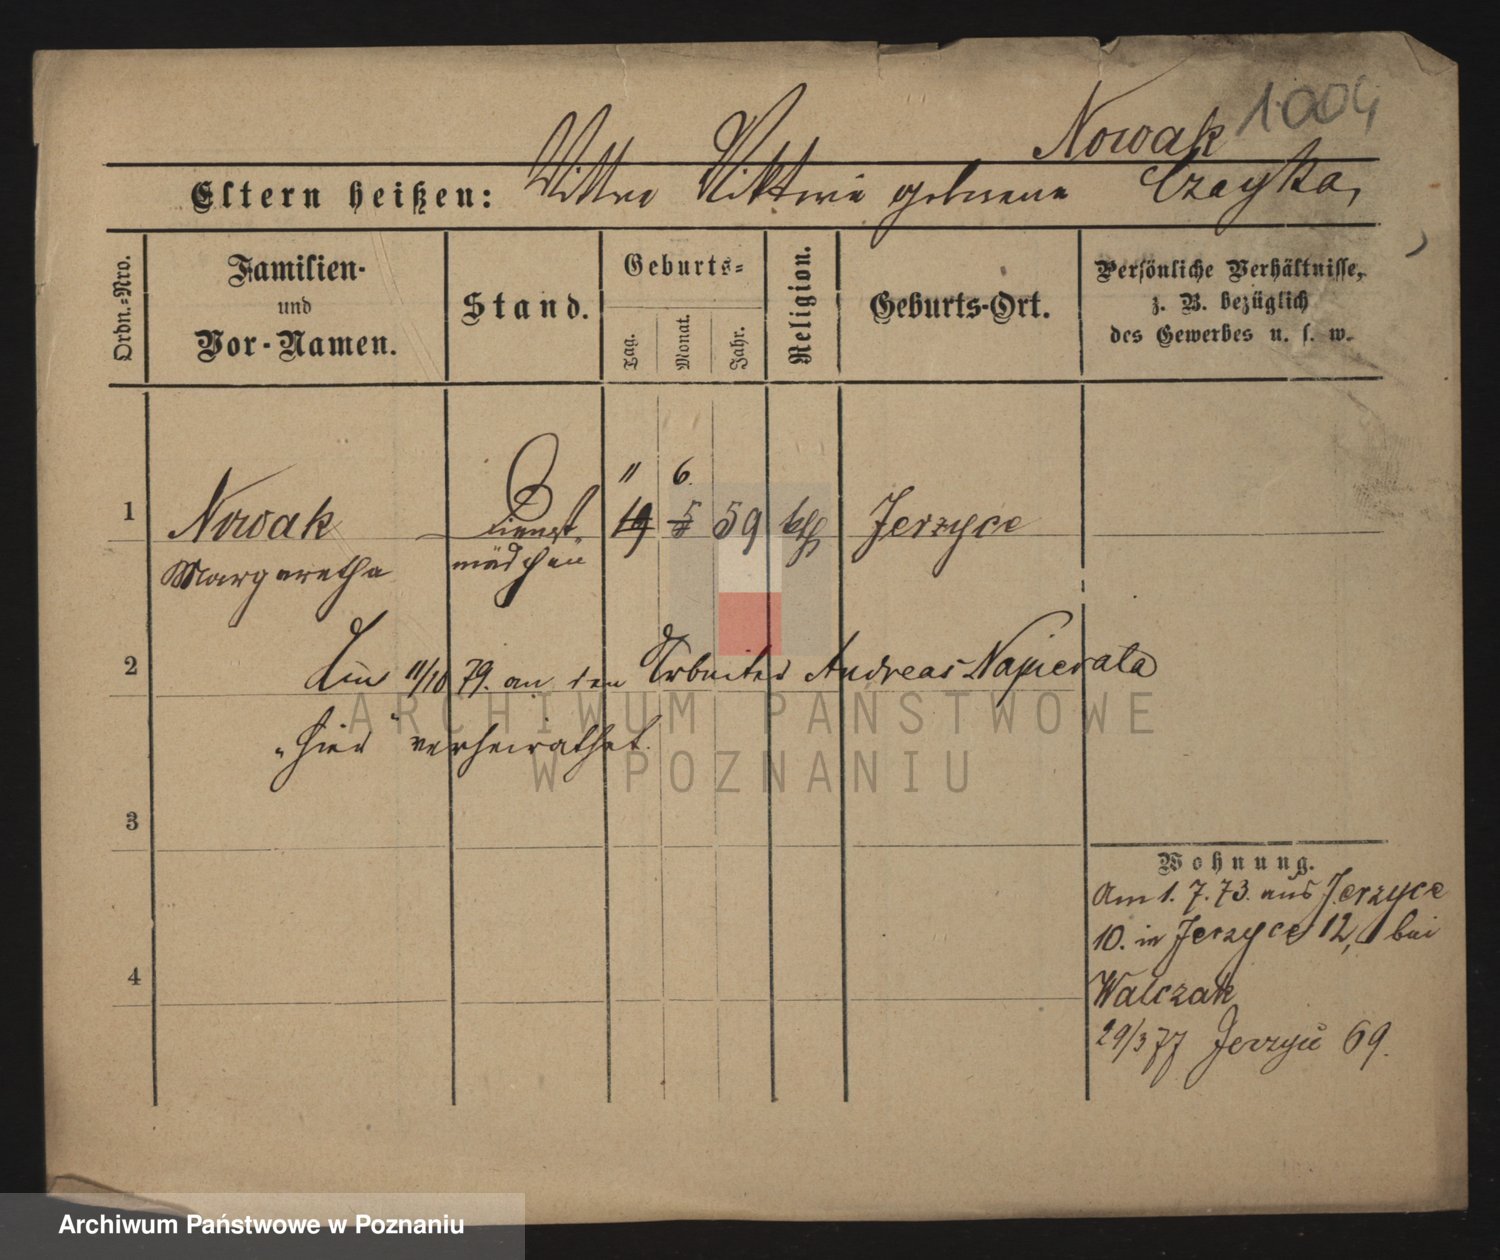 Nowak 1004
Eltern heißen: Viktoria geborene Czayka,
Ordn.-Nro.
Familien-
und
Vor-Namen.
Stand.
Geburts-
Tag.
Monat.
Jahr.
Religion.
Geburts-Ort.
Persönliche Verhältnisse,
z. B. bezüglich
des Gewerbes u. s. w.
11 6.
1 Nowak Dienst- 19 5 59 kth Jerzyce
Margaretha mädchen
2 11/10 79. an den Arbeiter Andreas Napierala
"hier" verheirathet.
3
4
Wohnung.
Am 1. 7. 73. aus Jerzyce
10. in Jerzyce 12, bei
Walczak
29/3 77 Jerzyce 69.
ARCHIWUM PAŃSTWOWE
W POZNANIU
Archiwum Państwowe w Poznaniu